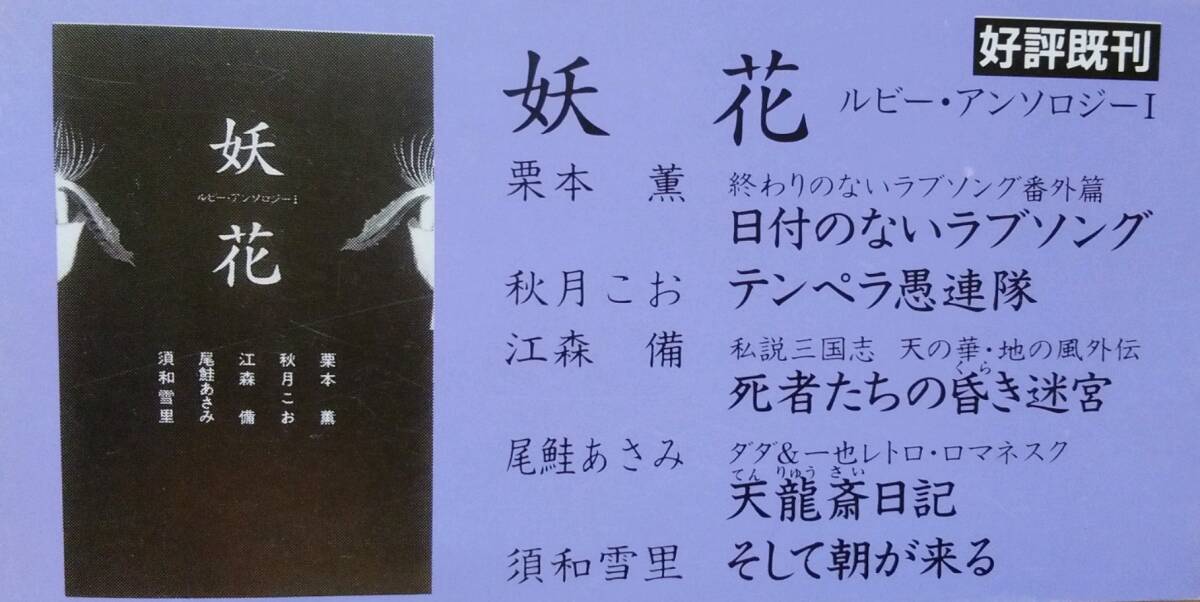 妖花
ルビー・アンソロジーI
栗本 薫
秋月こお
江森 備
尾鮭あさみ
須和雪里
好評既刊
妖 花
ルビー・アンソロジーI
栗本 薫
終わりのないラブソング番外篇
日付のないラブソング
秋月こお
テンペラ愚連隊
江森 備
私説三国志 天の華・地の風外伝
くら
死者たちの昏き迷宮
尾鮭あさみ
ダダ&一也レトロ・ロマネスク
てんりゅうさい
天龍斎日記
須和雪里
そして朝が来る